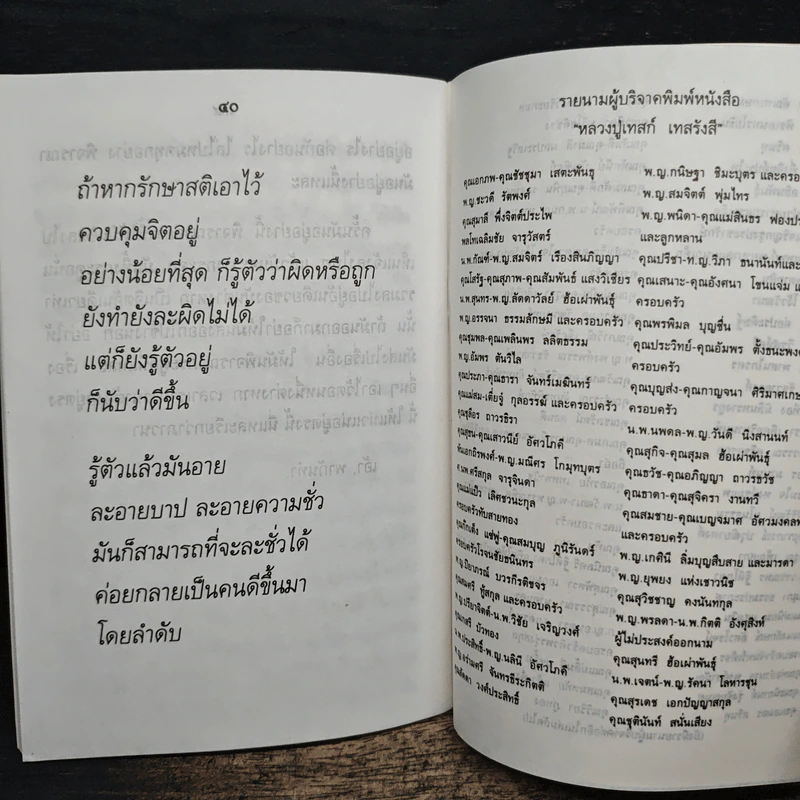 ๔๐
ถ้าหากรักษาสติเอาไว้
ควบคุมจิตอยู่
อย่างน้อยที่สุด ก็รู้ตัวว่าผิดหรือถูก
ยังทำยังละผิดไม่ได้
แต่ก็ยังรู้ตัวอยู่
ก็นับว่าดีขึ้น
รู้ตัวแล้วมันอาย
ละอายบาป ละอายความชั่ว
มันก็สามารถที่จะละชั่วได้
ค่อยกลายเป็นคนดีขึ้นมา
โดยลำดับ
รายนามผู้บริจาคพิมพ์หนังสือ
"หลวงปู่เทสก์ เทสรังสี"
คุณเอกภพ-คุณชัชชุมา เสตะพันธุ
พ.ญ.ชะวดี รัตพงศ์
คุณสุมาลี พึ่งจิตต์ประไพ
พลโทเฉลิมชัย จารุวัสตร์
น.พ.กัณฑ์-พ.ญ.สมจิตร์ เรืองสินภิญญา
คุณโสรัฐ-คุณสุภาพ-คุณสัมพันธ์ แสงวิเชียร
น.พ.สุนทร-พ.ญ.ลัดดาวัลย์ ฮ้อเผ่าพันธุ์
พ.ญ.อรรจนา ธรรมลักษมี และครอบครัว
คุณชุมพล-คุณเพลินพร ลลิตธรรม
พ.ญ.อัมพร ตันวิไล
คุณประภา-คุณธารา จันทร์เมฆินทร์
คุณแม่สม-เตี่ยจู้ กุลอรรฆ์ และครอบครัว
คุณชูล็อร ถาวรธิรา
คุณสุธน-คุณเสาวนีย์ อัศวโภคี
พันเอกถิรพงศ์-พ.ญ.มณีศร โกมุทบุตร
น.พ.ศรีสกุล จารุจินดา
คุณแม่แป๊ว เลิศชวนะกุล
ครอบครัวทับสายทอง
คุณกิกเต็ง แซ่ฟู-คุณสมบุญ ภูนิรันดร์
ครอบครัวโรจนชัยชนินทร
พ.ญ.ปิยาภรณ์ บวรกีรติขจร
คุณสมศรี ชูัสกุล และครอบครัว
พ.ญ.ปรียาจิตต์-น.พ.วิชัย เจริญวงศ์
คุณเกศรี บัวทอง
น.พ.ประสิทธิ์-พ.ญ.นลินี อัศวโภคี
จันทร์ธีระกิตติ
วงศ์ประสิทธิ์
พ.ญ.กนิษฐา ชิมะบุตร และครอบ
พ.ญ.สมจิตต์ พุ่มไทร
พ.ญ.พนิดา-คุณแม่สินธร ฟองประ
และลูกหลาน
คุณปรีชา-ท.ญ.วิภา ธนานันท์และ
คุณเสนาะ-คุณอังศนา โขนแจ่ม แ
ครอบครัว
คุณพรพิมล บุญชื่น
คุณประวิทย์-คุณอัมพร ตั้งธนะพงศ
ครอบครัว
คุณบุญส่ง-คุณกาญจนา ศิริมาศเกษ
ครอบครัว
น.พ.นพดล-พ.ญ.วันดี นิงสานนท์
คุณสุกิจ-คุณสุมล ฮ้อเผ่าพันธุ์
คุณธวัช-คุณอภิญญา ถาวรธวัช
คุณธาดา-คุณสุจิครา งานทวี
คุณสมชาย-คุณเบญจมาศ อัศวมงคลพ
พ.ญ.เกศินี ลิ่มบุญสืบสาย และมารดา
พ.ญ.ยุพยง แห่งเชาวนิช
คุณสุวิชชาญ คงนันทกุล
พ.ญ.พรลดา-น.พ.กิตติ อังศุสิงห์
ผู้ไม่ประสงค์ออกนาม
คุณสุนทรี ฮ้อเผ่าพันธุ์
น.พ.เจตน์-พ.ญ.รัตนา โลหารชุน
คุณสุรเดช เอกปัญญาสกุล
คุณชุตินันท์ สนั่นเสียง